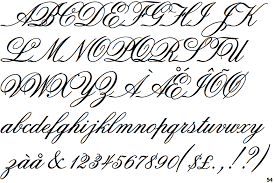 ABCDEFGHIJK
LMNOPQRSTU
VWXYZÀÅÉÎÕØ
abcdefghijklmnopqrstuvwxy
zàå&1234567890($£.,!?)
54